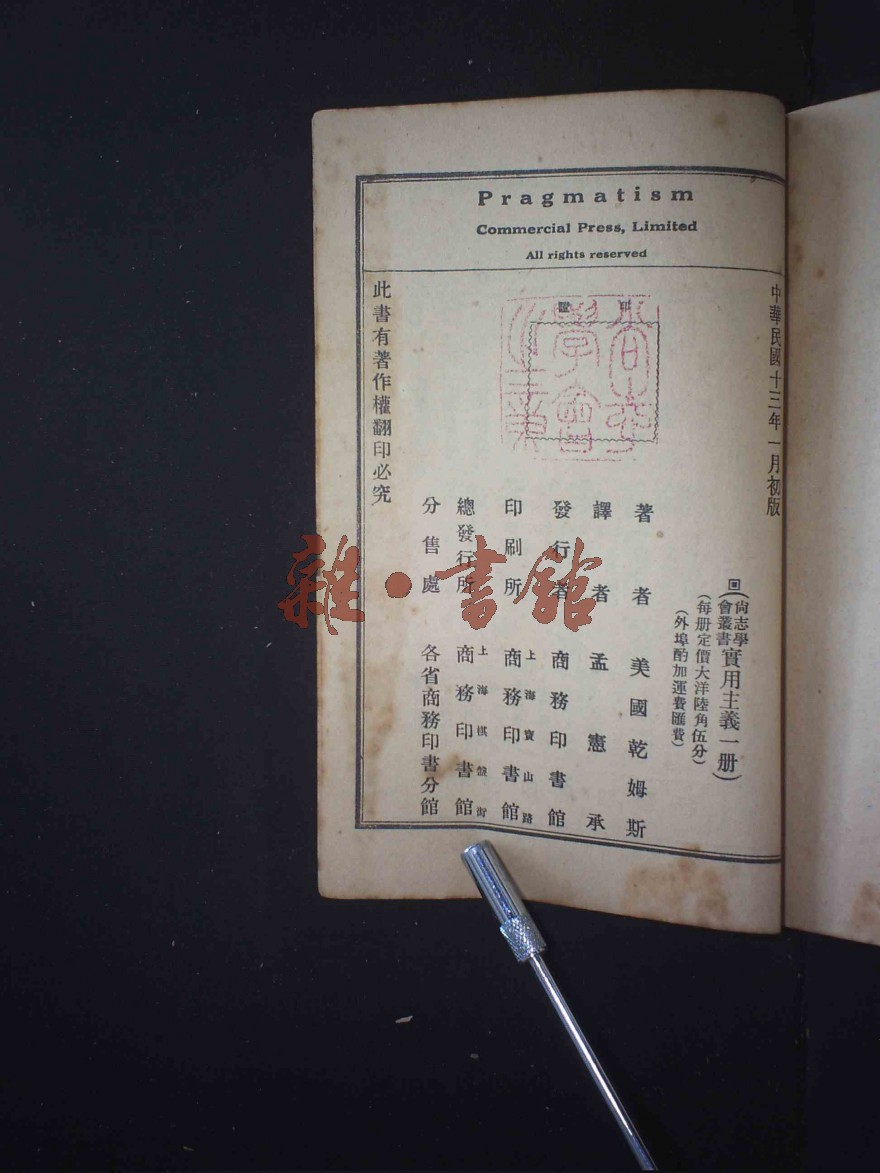 Pragmatism
Commercial Press, Limited
All rights reserved
中華民國十三年一月初版
回(尚志學會叢書實用主義一册)
(每册定價大洋陸角伍分)
(外埠酌加運費匯費)
著者 美國乾姆斯
譯者 孟憲承
發行者 商務印書館
印刷所 上海寶山路 商務印書館
總發行所 上海棋盤街 商務印書館
分售處 各省商務印書分館
此書有著作權翻印必究
印證
雜·書館